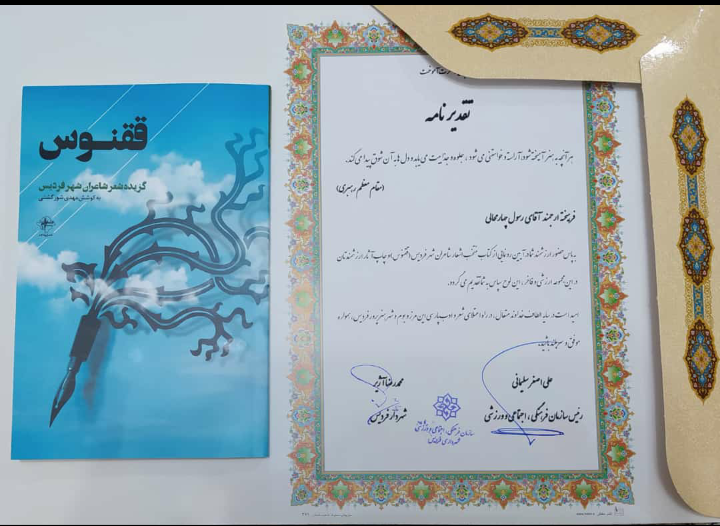 ققنوس
گزیده شعر شاعران شهر فردیس
به کوشش مهدی شورگشتی
تقدیرنامه
هر آنچه به هنر آمیخته شود، آراسته و خواستنی می شود، جلوه و جذابیت می یابد و دل ها به آن شوق پیدا می کند.
(مقام معظم رهبری)
فرهیخته ارجمند آقای رسول چهارمحالی
به پاس حضور ارزشمند شما در آیین رونمایی از کتاب منتخب اشعار شاعران شهر فردیس (ققنوس) و چاپ آثار ارزشمندتان
در این مجموعه ارزشی و فاخر، این لوح سپاس به شما تقدیم می گردد.
امید است در سایه الطاف خداوند متعال، در راه اعتلای شعر و ادب پارسی این مرز و بوم و شهر هنرپرور فردیس، همواره
موفق و سربلند باشید.
علی اصغر سلیمانی
رئیس سازمان فرهنگی، اجتماعی و ورزشی
محمدرضا آژیر
شهردار فردیس
سازمان فرهنگی، اجتماعی و ورزشی
شهرداری فردیس